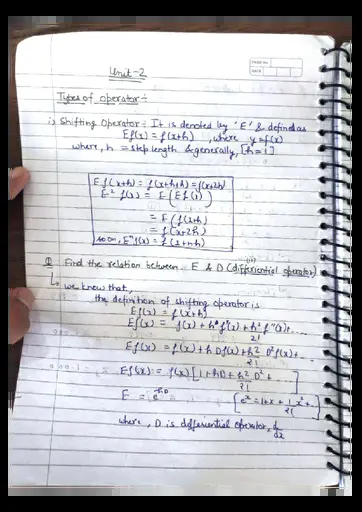 Unit-2
PAGE NO.
DATE
Types of operator ÷
i) Shifting Operator ÷ It is denoted by 'E' & defined as
Ef(x) = f(x+h) , where y=f(x)
where, h = step length & generally, [h=1]
E f(x+h) = f(x+h+h) = f(x+2h)
E² f(x) = E (E f(x))
= E (f(x+h)
= f(x+2h)
so on, Eⁿ f(x) = f(x+nh)
(ii)
Q Find the relation between E & D (differential operator)
↳ we know that,
the definition of shifting operator is
Ef(x) = f(x+h)
Ef(x) = f(x) + h f'(x) + h²/2! f''(x)+..
Ef(x) = f(x) + h Df(x) + h²/2! D²f(x)+..
Ef(x) = f(x) [1+hD + h²/2! D² +
E = e^hD [eˣ = 1+x + 1/2! x² +
where, D is differential operator, d/dx